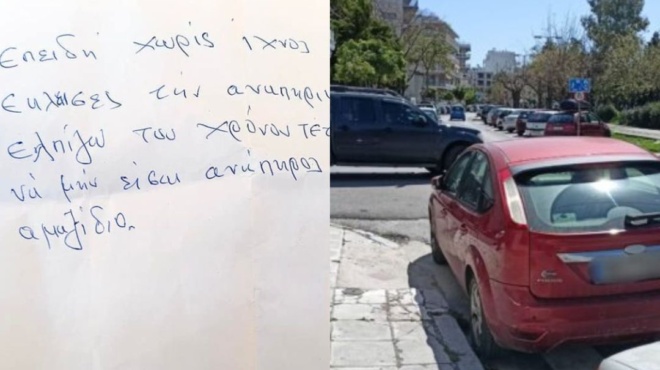 Επειδή χωρίς ίχνος
έκλεισες την αναπηρικ
ελπίζω του χρόνου τέτ
νά μήν είσαι ανάπηρος
αμαξίδιο.